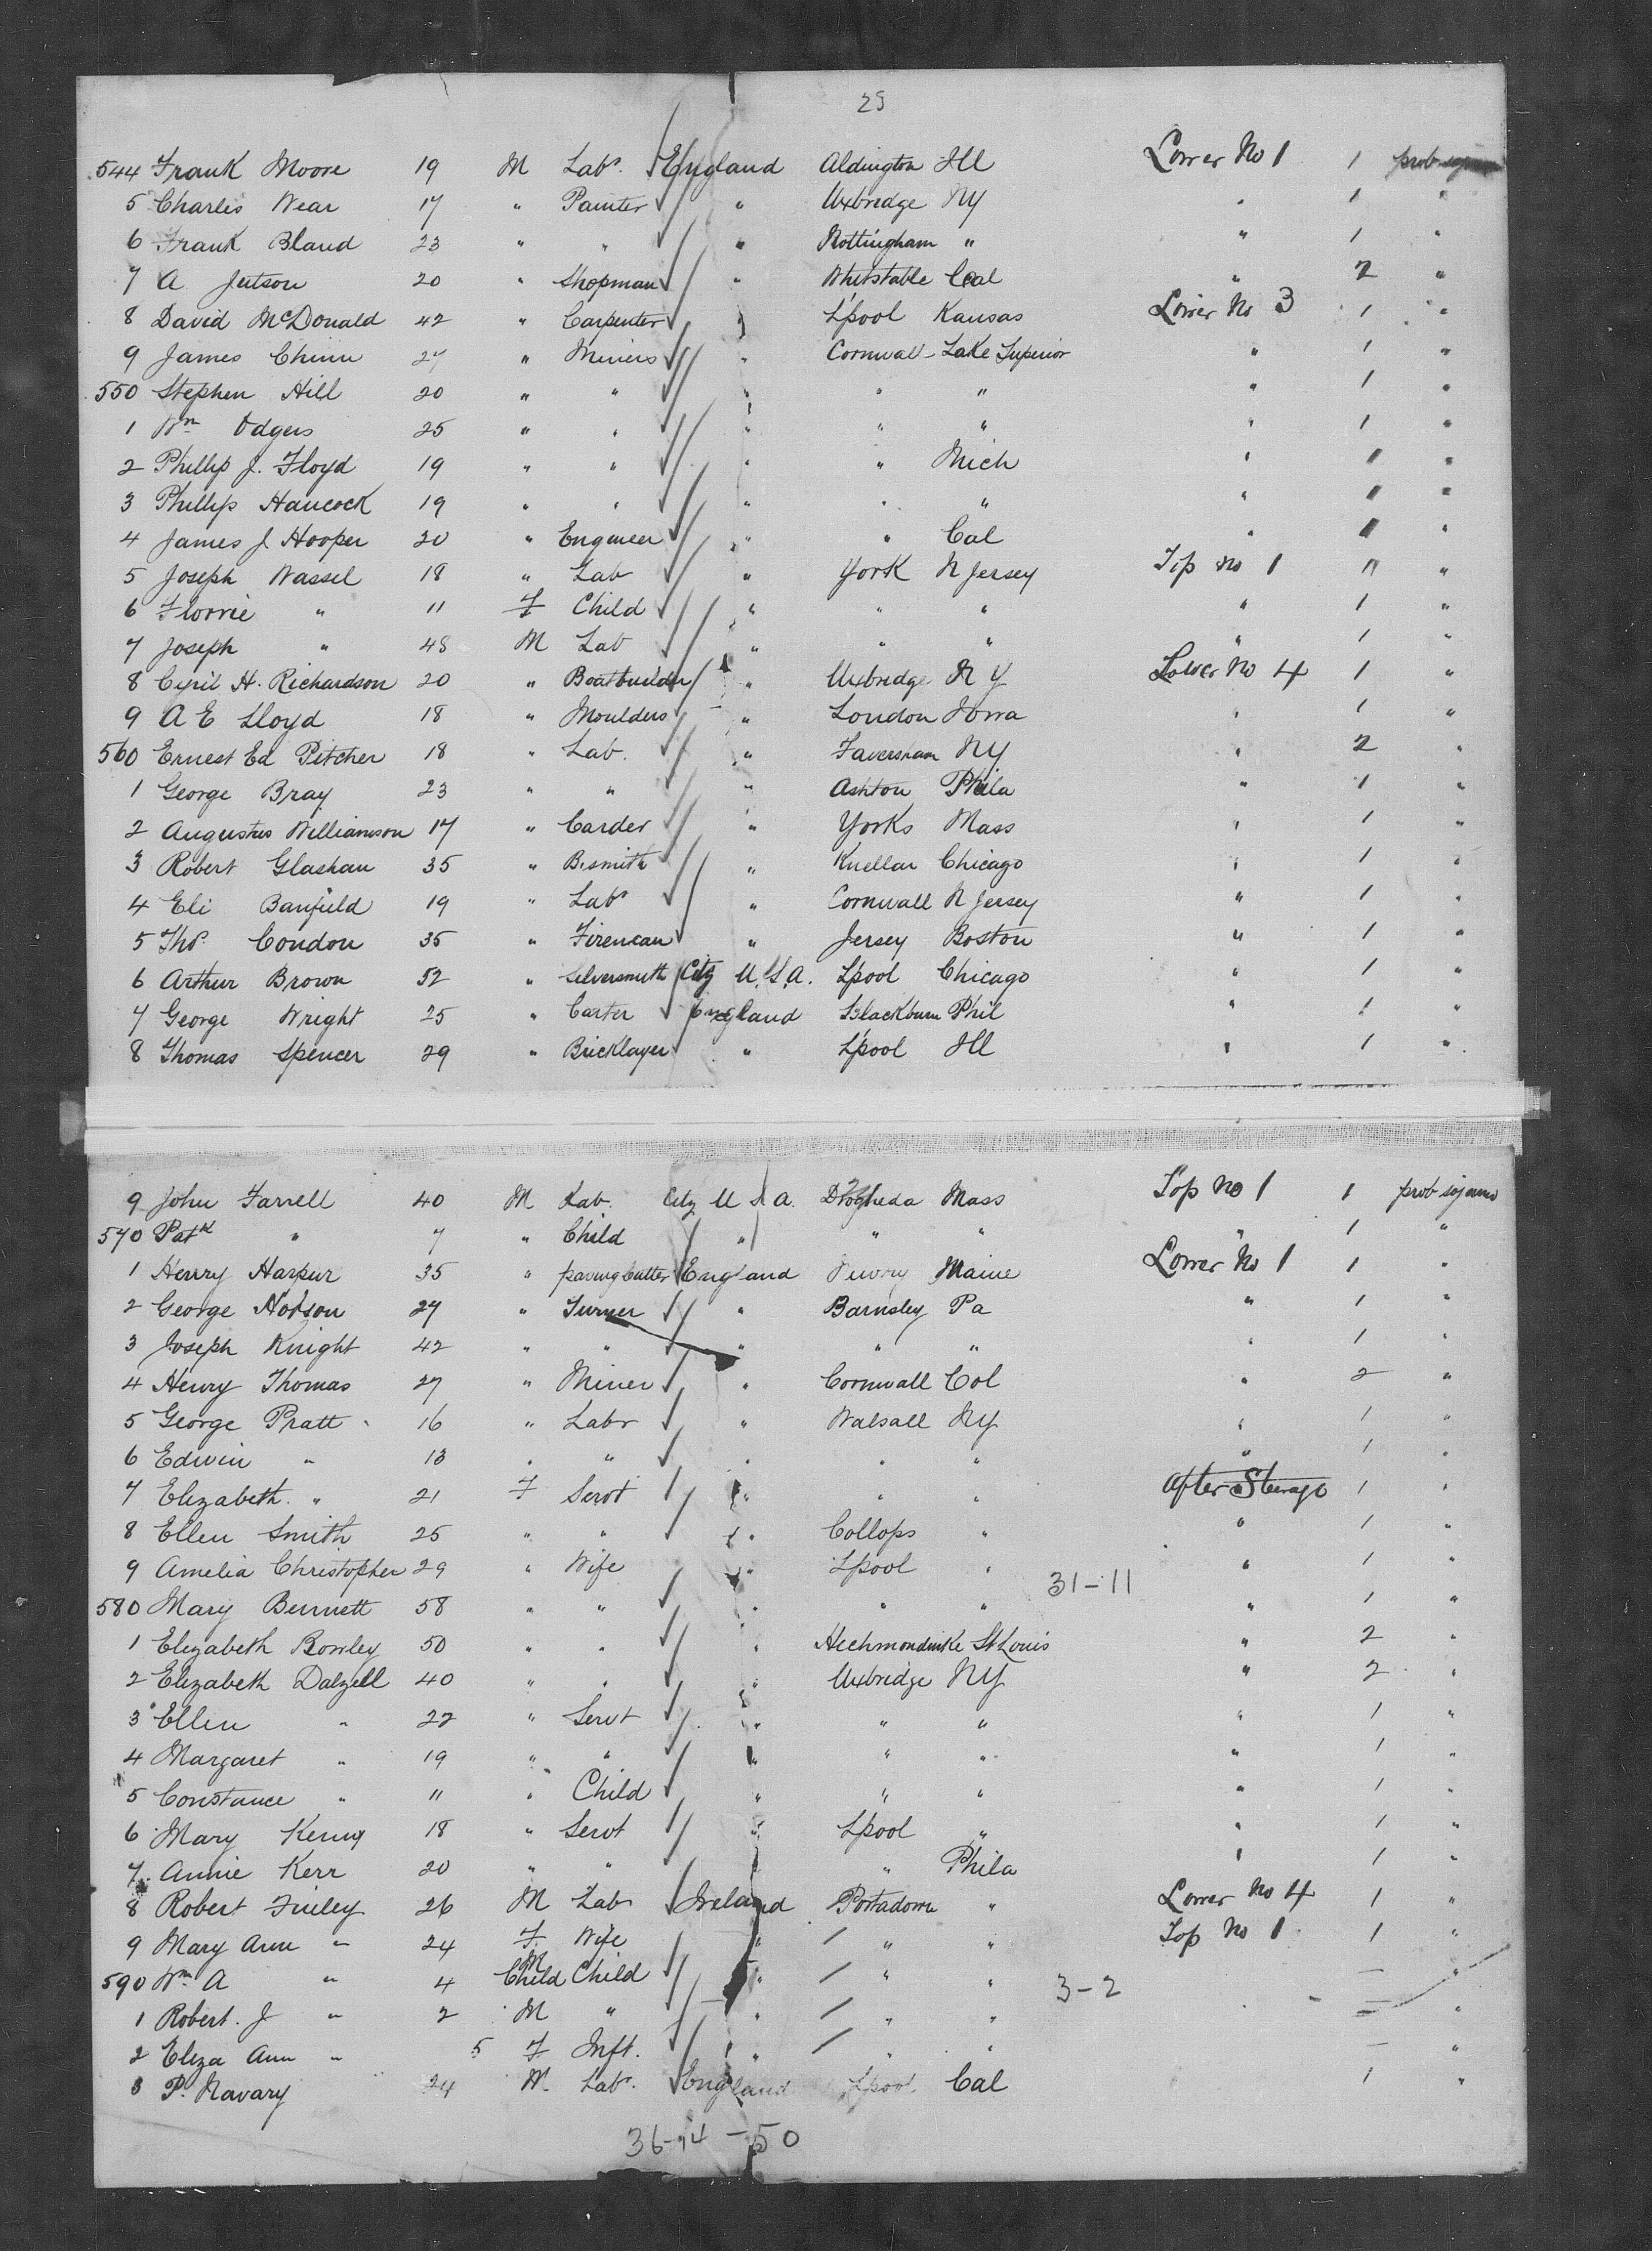 25
544 Frank Moore 19 M Labr. England Aldington Ill Lower No 1 1 prob
5 Charles Wear 17 " Painter " Uxbridge NY " 1 "
6 Frank Bland 23 " " " Nottingham " " 1 "
7 A Jutson 20 " Shopman " Whitstable Cal " 2 "
8 David McDonald 42 " Carpenter " L'pool Kansas Lower No 3 1 "
9 James Chinn 27 " Miners " Cornwall Lake Superior " 1 "
550 Stephen Hill 20 " " " " " " 1 "
1 Wm Odgers 25 " " " " " " 1 "
2 Phillip J. Floyd 19 " " " " Mich " 1 "
3 Phillip Hancock 19 " " " " " " 1 "
4 James J Hooper 20 " Engineer " " Cal " 1 "
5 Joseph Wassel 18 " Lab " York N Jersey Top No 1 " "
6 Florrie " 11 F Child " " " " 1 "
7 Joseph " 48 M Lab " " " " 1 "
8 Cyril H. Richardson 20 " Boatbuilder " Uxbridge N Y Lower No 4 1 "
9 A E Lloyd 18 " Moulders " London Iowa " 1 "
560 Ernest Ed Pitcher 18 " Lab. " Faversham NY " 2 "
1 George Bray 23 " " " Ashton Phila " 1 "
2 Augustus Williamson 17 " Carder " Yorks Mass " 1 "
3 Robert Glashan 35 " B.smith " Knellar Chicago " 1 "
4 Eli Banfield 19 " Labr " Cornwall N Jersey " 1 "
5 Thos. Condon 35 " Fireman " Jersey Boston " 1 "
6 Arthur Brown 52 " Silversmith City U.S.A. L'pool Chicago " 1 "
7 George Wright 25 " Carter England Blackburn Phil " 1 "
8 Thomas Spencer 29 " Bricklayer " L'pool Ill " 1 "
9 John Farrell 40 M Lab. City U S A. Drogheda Mass Top No 1 1 prob sojourn
570 Patk " 7 " Child " " " " 1 "
1 Henry Harpur 35 " paving Cutter England Newry Maine Lower No 1 1 "
2 George Hobson 27 " Turner " Barnsley Pa " 1 "
3 Joseph Knight 42 " " " " " " 1 "
4 Henry Thomas 27 " Miner " Cornwall Col " 2 "
5 George Pratt 16 " Labr " Walsall NY " 1 "
6 Edwin " 13 " " " " " " 1 "
7 Elizabeth " 21 F Servt " " " After Steerage 1 "
8 Ellen Smith 25 " " " Collops " " 1 "
9 Amelia Christopher 29 " Wife " Lpool " 31-11 " 1 "
580 Mary Bennett 58 " " " " " " 1 "
1 Elizabeth Bowley 50 " " " Hechmondwike St Louis " 2 "
2 Elizabeth Dalzell 40 " " " Uxbridge NY " 2 "
3 Ellen " 22 " Servt " " " " 1 "
4 Margaret " 19 " " " " " " 1 "
5 Constance " 11 " Child " " " " 1 "
6 Mary Kenny 18 " Servt " Lpool " " 1 "
7 Annie Kerr 20 " " " " Phila " 1 "
8 Robert Finley 26 M Lab Ireland Portadown " Lower No 4 1 "
9 Mary Ann " 24 F. Wife " " " Top No 1 1 "
590 Wm A " 4 M Child Child " " " 3-2 - "
1 Robert. J " 2 M " " " " " - "
2 Eliza Ann " 5 F Inft. " " " - "
3 P. Navary 24 M. Labr. England Lpool Cal 1 "
36-14-50